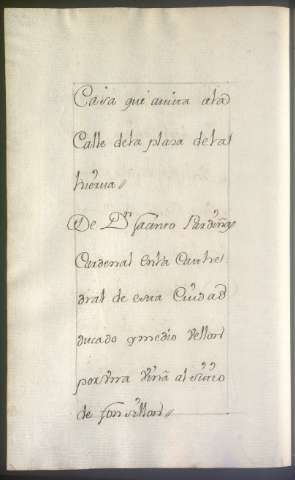 Casa que mira a la
Calle de la plaza de la
hierua
De Dn Jacinto Pardiñas
Cardenal en la Cathe
dral de esta Ciudad
ducado y medio Vellon
por vna viña al sitio
de